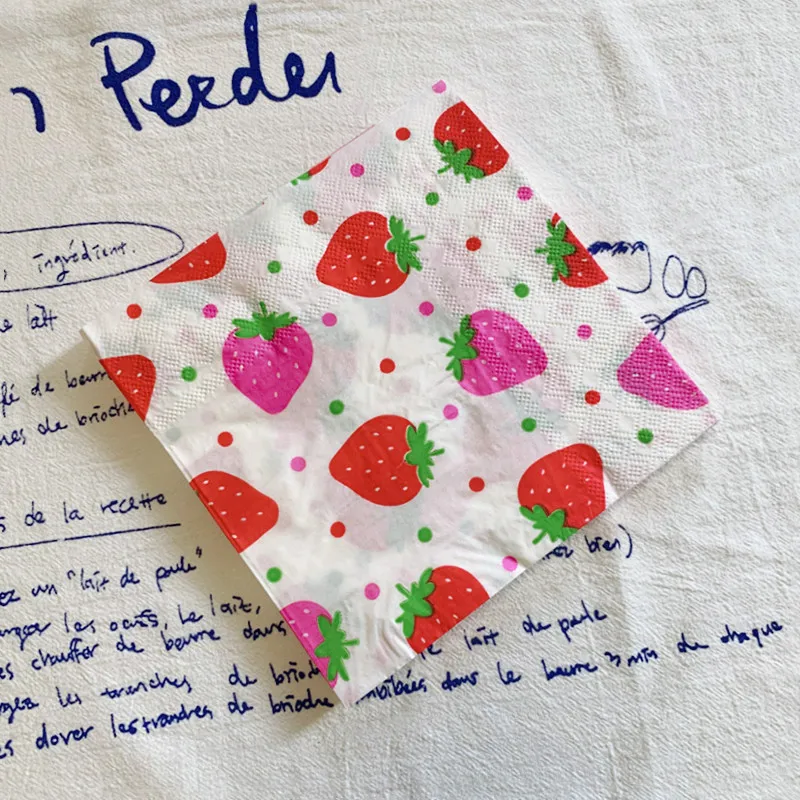 Perdu
, ingrédient.
e lait
fé de beurre
nes de brioche
s de la recette
ez un "lait de poule"
anger les oeufs, le lait,
bien)
es chauffer de beurre dans le lait de poule
gez les tranches de brioche imbibées dans le beurre 3 min de chaque
es dorer les tranches de brioche